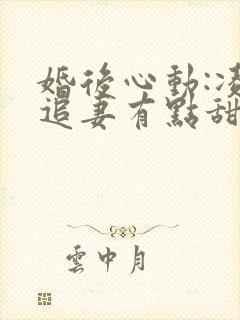 婚後心動:凌
追妻有點甜
雲中月